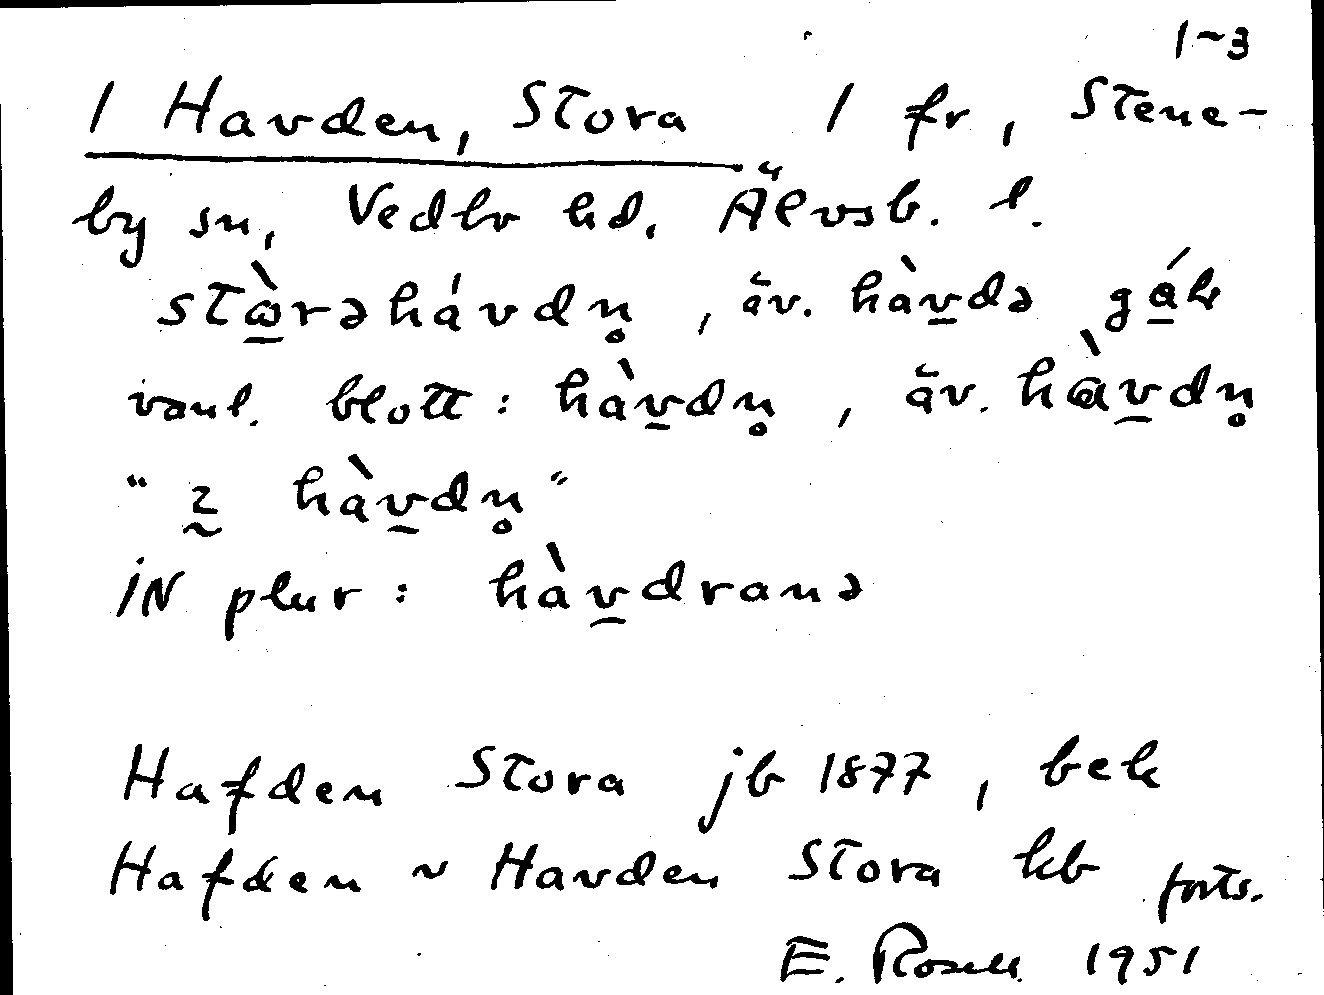 1~3
1 Havden, Stora 1 fr, Stene-
by sn, Vedbo hd. Älvsb. l.
stàrəhávdn̥, äv. hàvdə gák
vanl. blott: hàvdn̥, äv. hàvdn̥
"z hàvdn̥"
IN plur: hàvdranə
Hafden Stora jb 1877, bek
Hafden ~ Havden Stora kb forts.
E. Rosell 1951